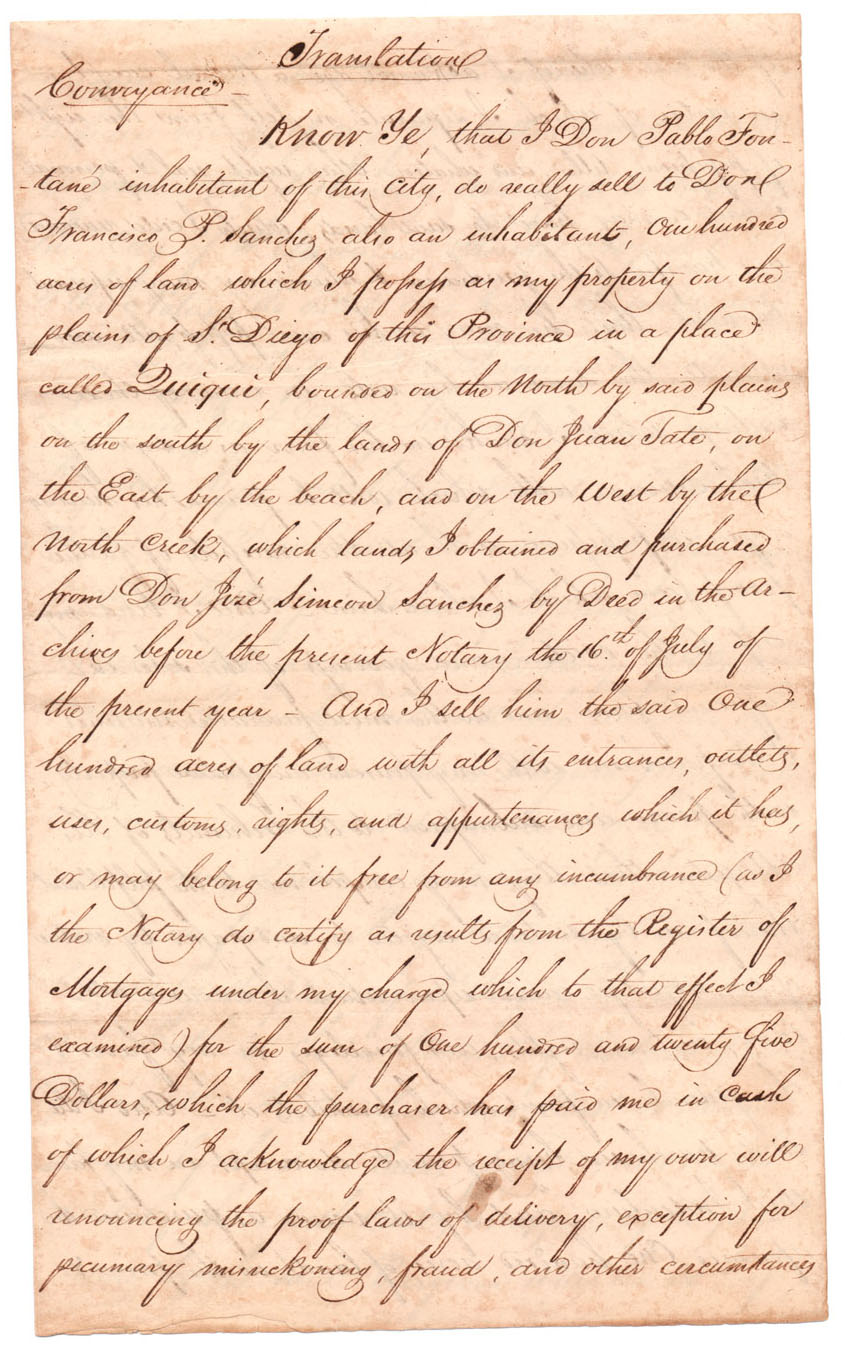 Translation
Conveyance –
Know Ye, that I Don Pablo Fon-
-tané inhabitant of this city, do really sell to Don
Francisco P. Sanchez also an inhabitant, One hundred
acres of land which I possess as my property on the
plains of Sn. Diego of this Province in a place
called Quiqui, bounded on the North by said plains
on the south by the lands of Don Juan Tate, on
the East by the beach, and on the West by the
North Creek, which lands I obtained and purchased
from Don José Simeon Sanchez by Deed in the Ar-
chives before the present Notary the 16th. of July of
the present year – And I sell him the said One
hundred acres of land with all its entrances, outlets,
uses, customs, rights, and appurtenances which it has,
or may belong to it free from any incumbrance (as I
the Notary do certify as results from the Register of
Mortgages under my charge which to that effect I
examined) for the sum of One hundred and twenty five
Dollars, which the purchaser has paid me in cash
of which I acknowledge the receipt of my own will
renouncing the proof laws of delivery, exception for
pecuniary misreckoning, fraud, and other circumstances